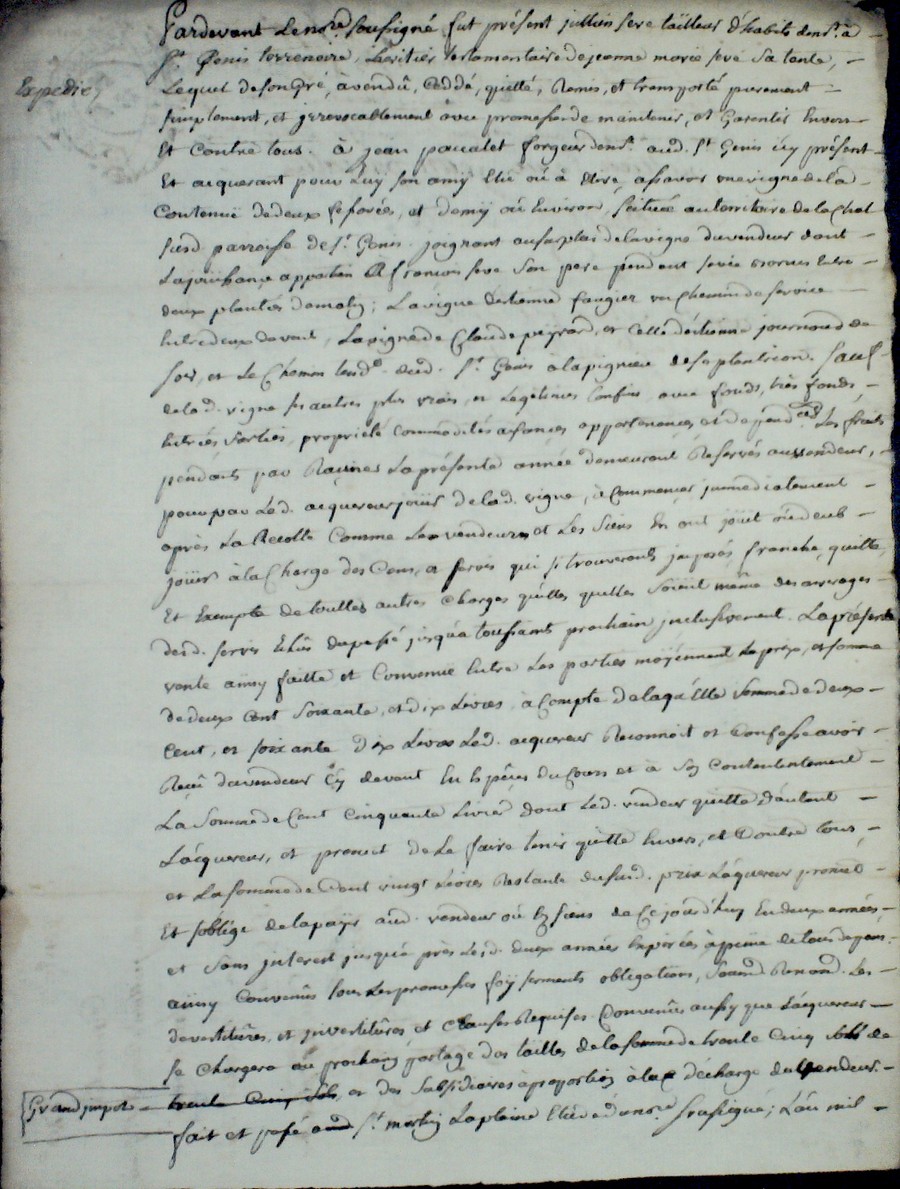 Pardevant Le no.re soussigné fut présent jullien seve tailleur d'habits dem.t à
S.t Genis terrenoire, heritier testamentaire de jeanne marie seve sa tante,
Expedié
Lequel de son Gré, a vendû, Ceddé, quitté, Remis, et transporté purement
simplement, et jrrevocablement avec promesse de maintenir, et Garentir Envers
Et Contre tous. à jean paccalet forgeur dem.t aud. S.t Genis icy présent
Et acquerant pour Luy son amy Elû où à Elire, assavoir une vigne de la
Contenüe de deux et demy où Environ, scituée au territoire de la Chal
susd. parroisse de S.t Genis. joignant la vigne du vendeur dont
La appartien A francois seve son pere pendant
deux plantés ; La vigne d'etienne faugier un Chemin de service
Entre deux devant, La vigne de Claude peyrard, et celle d'étienne journoud de
soir, et Le Chemin tend.t dud. S.t Genis à la sauf
de lad. vigne ses autres plus vrais, et Legitimes Confins avec fonds, très fonds
Entrées sorties, proprieté Commodités aisances appartenances et dépend.ces Les fruits
pendants par Racines La présente année demeurant Reservés au vendeur,
pour par Led. acquereur joüir de lad. vigne, à Commencer jmmediatement
après La Recolte Comme Les vendeurs et Les Siens En ont joüit où deub
joüir à la Charge des Cens, et servis qui s'y trouveront jmposés franche, quitte,
Et Exempte de touttes autres Charges quelles quelles soient même des arrerages
desd. servis Echûs du passé jusqu'a toussaints prochain jnclusivement. La présente
vente ainsy faitte et Convenüe Entre Les parties moÿennant Le prix, et somme
de deux Cent Soixante, et dix Livres, à Compte de laquelle somme de deux
Cent, et soixante dix Livres Led. acquereur Reconnoit et Confesse avoir
Reçû du vendeur Cy devant En Espèces du Cours et à son Contentement
La Somme de Cent Cinquante Livres dont Led. vendeur quitte d'autant
L'acquereur, et promet de Le faire tenir quitte Envers, et Contre tous,
et La somme de Cent vingt Livres Restante dusud. prix L'acquereur promet
Et s'oblige de la payer aud. vendeur où Es siens de Ce jourd'huy En deux années,
et sans jnterest jusqu'à près Lesd. deux années Expirées à peine de tous depens.
ainsy Convenûs sous Les promesses foÿ serments obligations, Renond. Les
devestitûres, et jnvestitûres et Clauses Requises. Convenûs aussy que L'acquereur
se Chargera au prochain partage des tailles de la somme de trente Cinq sols de
Grand jmpots trente Cinq Sols, et des Subsidiaires à proportion à la décharge du vendeur.
fait et passé aud. S.t martin La plaine Etude du no.re soussigné; L'an mil